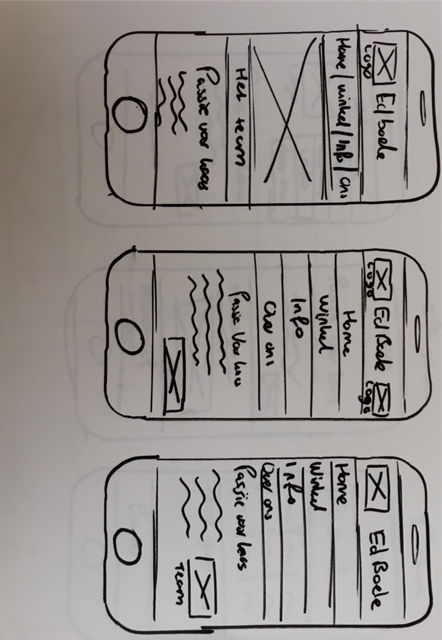 Ed Boele
Logo
Home/winkel/Info/Ons
Het team
Passie voor kaas
Ed Boele
Logo
Logo
Home
Winkel
Info
Over ons
Passie voor kaas
Ed Boele
Home
Winkel
Info
Over ons
Passie voor kaas
Team